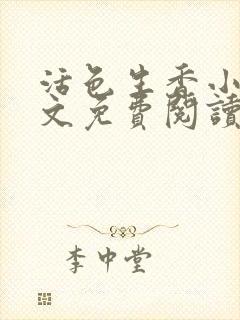 活色生香小
文免費閱讀
李中堂